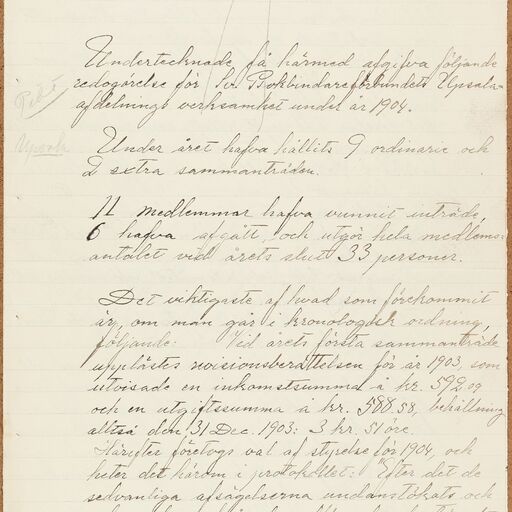 Undertecknade få härmed afgifva följande
redogörelse för Sv. Bokbindareförbundets Upsala-
afdelnings verksamhet under år 1904.
Upsala
Under året hafva hållits 9 ordinarie och
2 extra sammanträden.
11 medlemmar hafva vunnit inträde,
6 hafva afgått, och utgör hela medlems-
antalet vid årets slut 33 personer.
Det viktigaste af hvad som förekommit
är, om man går i kronologisk ordning,
följande: Vid årets första sammanträde
upplästes revisionsberättelsen för år 1903, som
utvisade en inkomstsumma å kr. 592,09
och en utgiftssumma å kr. 588,58, behållning
alltså den 31 Dec. 1903: 3 kr. 51 öre.
Härefter företogs val af styrelse för 1904, och
heter det härom i protokollet: "Efter det de
sedvanliga afsägelserna undanstökats och